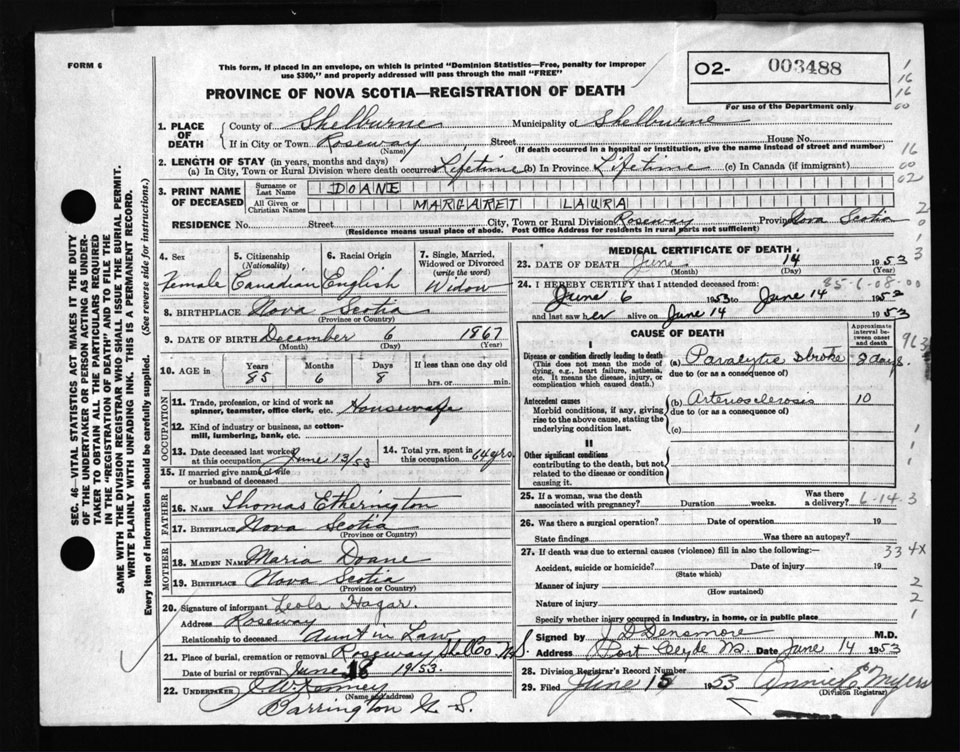 FORM 6
This form, if placed in an envelope, on which is printed "Dominion Statistics—Free, penalty for improper
use $300," and properly addressed will pass through the mail "FREE"
O2- 003488
For use of the Department only
PROVINCE OF NOVA SCOTIA—REGISTRATION OF DEATH
1. PLACE OF DEATH
County of Shelburne Municipality of Shelburne
If in City or Town Roseway Street House No.
(Name) (If death occurred in a hospital or institution, give the name instead of street and number)
2. LENGTH OF STAY (in years, months and days)
(a) In City, Town or Rural Division where death occurred Lifetime (b) In Province Lifetime (c) In Canada (if immigrant)
3. PRINT NAME OF DECEASED
Surname or Last Name DOANE
All Given or Christian Names MARGARET LAURA
RESIDENCE No. Street City, Town or Rural Division Roseway Province Nova Scotia
(Residence means usual place of abode. Post Office Address for residents in rural parts not sufficient)
4. Sex Female
5. Citizenship (Nationality) Canadian
6. Racial Origin English
7. Single, Married, Widowed or Divorced (write the word) Widow
8. BIRTHPLACE Nova Scotia
(Province or Country)
9. DATE OF BIRTH December 6 1867
(Month) (Day) (Year)
10. AGE in Years 85 Months 6 Days 8 If less than one day old hrs. or min.
OCCUPATION
11. Trade, profession, or kind of work as spinner, teamster, office clerk, etc. Housewife
12. Kind of industry or business, as cotton-mill, lumbering, bank, etc.
13. Date deceased last worked at this occupation June 13/53
14. Total yrs. spent in this occupation 64 yrs.
15. If married give name of wife or husband of deceased
FATHER
16. NAME Thomas Etherington
17. BIRTHPLACE Nova Scotia
(Province or Country)
MOTHER
18. MAIDEN NAME Maria Doane
19. BIRTHPLACE Nova Scotia
(Province or Country)
20. Signature of informant Leola Hagar.
Address Roseway
Relationship to deceased Aunt in Law
21. Place of burial, cremation or removal Roseway Shel Co. N.S.
Date of burial or removal June 18 1953.
22. UNDERTAKER J McKenney
(Name and address)
Barrington N. S.
MEDICAL CERTIFICATE OF DEATH
23. DATE OF DEATH June 14 1953
(Month) (Day) (Year)
85-6-08-00
24. I HEREBY CERTIFY that I attended deceased from:
June 6 1953 to June 14 1953
and last saw her alive on June 14 1953
CAUSE OF DEATH
Approximate interval between onset and death
I
Disease or condition directly leading to death
(This does not mean the mode of dying, e.g., heart failure, asthenia, etc. It means the disease, injury, or complication which caused death.)
(a) Paralytic stroke 8 days.
due to (or as a consequence of)
Antecedent causes
Morbid conditions, if any, giving rise to the above cause, stating the underlying condition last.
(b) Arteriosclerosis 10
due to (or as a consequence of)
(c)
II
Other significant conditions
contributing to the death, but not related to the disease or condition causing it.
25. If a woman, was the death associated with pregnancy? Duration weeks. Was there a delivery?
6-14-3
26. Was there a surgical operation? Date of operation 19
State findings Was there an autopsy?
27. If death was due to external causes (violence) fill in also the following:—
334X
Accident, suicide or homicide? Date of injury 19
(State which)
Manner of injury
(How sustained)
Nature of injury
Specify whether injury occurred in industry, in home, or in public place
Signed by J D Densmore M.D.
Address Port Clyde NS. Date June 14 1953
28. Division Registrar's Record Number
29. Filed June 15 1953 Annie Myers
(Division Registrar)
SEC. 46—VITAL STATISTICS ACT MAKES IT THE DUTY
OF THE UNDERTAKER OR PERSON ACTING AS UNDER-
TAKER TO OBTAIN ALL THE PARTICULARS REQUIRED
IN THE "REGISTRATION OF DEATH" AND TO FILE THE
SAME WITH THE DIVISION REGISTRAR WHO SHALL ISSUE THE BURIAL PERMIT.
WRITE PLAINLY WITH UNFADING INK. THIS IS A PERMANENT RECORD.
Every item of information should be carefully supplied. (See reverse side for instructions.)
1
16
16
00
16
00
02
2
0
1
3
1
1
2
2
1